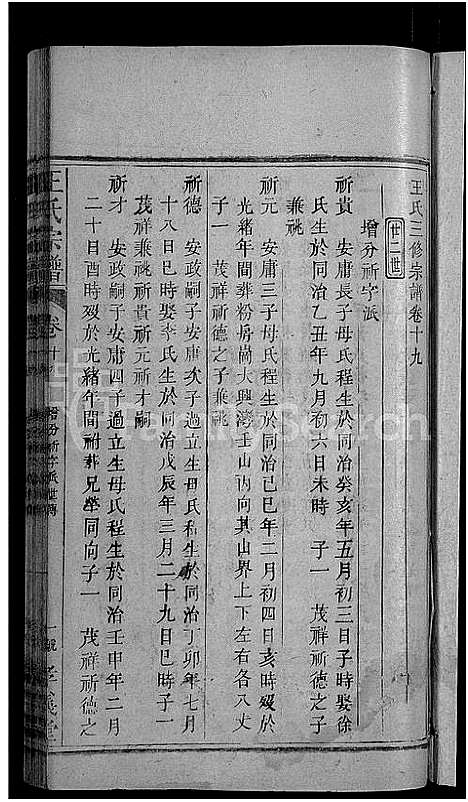 王氏三修宗譜卷十九
廿二世
增分祈字派
祈貴　安庸長子母氏程生於同治癸亥年五月初三日子時娶徐
氏生於同治乙丑年九月初六日未時　子一　茂祥祈德之子
兼祧
祈元　安庸三子母氏程生於同治己巳年二月初四日亥時歿於
光緒年間葬粉房崗大興灣壬山丙向其山界上下左右各八丈
子一　茂祥祈德之子兼祧
祈德　安政嗣子安庸次子過立生母氏程生於同治丁卯年七月
十八日巳時娶李氏生於同治戊辰年三月二十九日巳時子一
茂祥兼祧祈貴祈元祈才嗣
祈才　安政嗣子安庸四子過立生母氏程生於同治壬申年二月
二十日酉時歿於光緒年間祔葬兄塋同向子一　茂祥祈德之
王氏宗譜　卷十九　增分祈字派世傳　一號